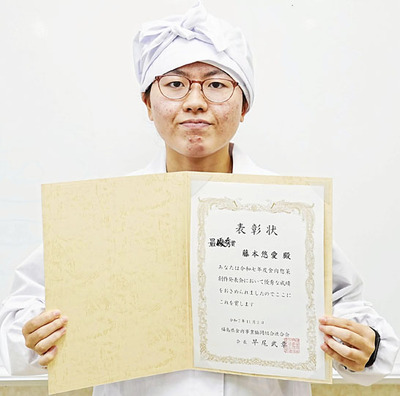 表彰状
最優秀賞
藤本悠愛 殿
あなたは令和七年度食肉惣菜
創作発表会において優秀な成績
をおさめられましたのでここに
これを賞します
令和7年11月5日
福島県食肉事業協同組合連合会
会長 早尾武章